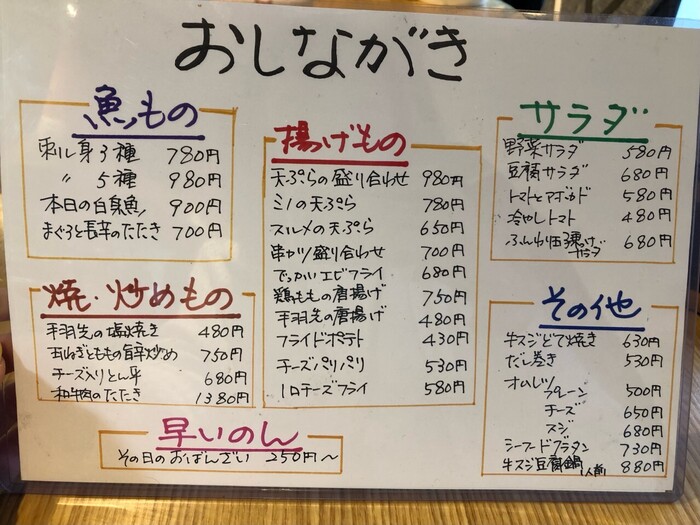 おしながき
魚もの
刺し身3種 780円
〃 5種 980円
本日の白身魚 900円
まぐろと長芋のたたき 700円
焼・炒めもの
手羽先の塩焼き 480円
玉ねぎとももの旨辛炒め 750円
チーズ入りとん平 680円
和牛肉のたたき 1380円
早いのん
その日のおばんざい 250円〜
揚げもの
天ぷらの盛り合わせ 980円
ミノの天ぷら 780円
スルメの天ぷら 650円
串カツ盛り合わせ 700円
でっかいエビフライ 680円
鶏ももの唐揚げ 750円
手羽先の唐揚げ 480円
フライドポテト 430円
チーズパリパリ 530円
1口チーズフライ 580円
サラダ
野菜サラダ 580円
豆腐サラダ 680円
トマトとアボカド 580円
冷やしトマト 480円
ふんわり
サラダ 680円
その他
牛スジどて焼き 630円
だし巻き 530円
オムレツ
プレーン 500円
チーズ 650円
スジ 680円
シーフードグラタン 730円
牛スジ豆腐鍋 1人前 880円